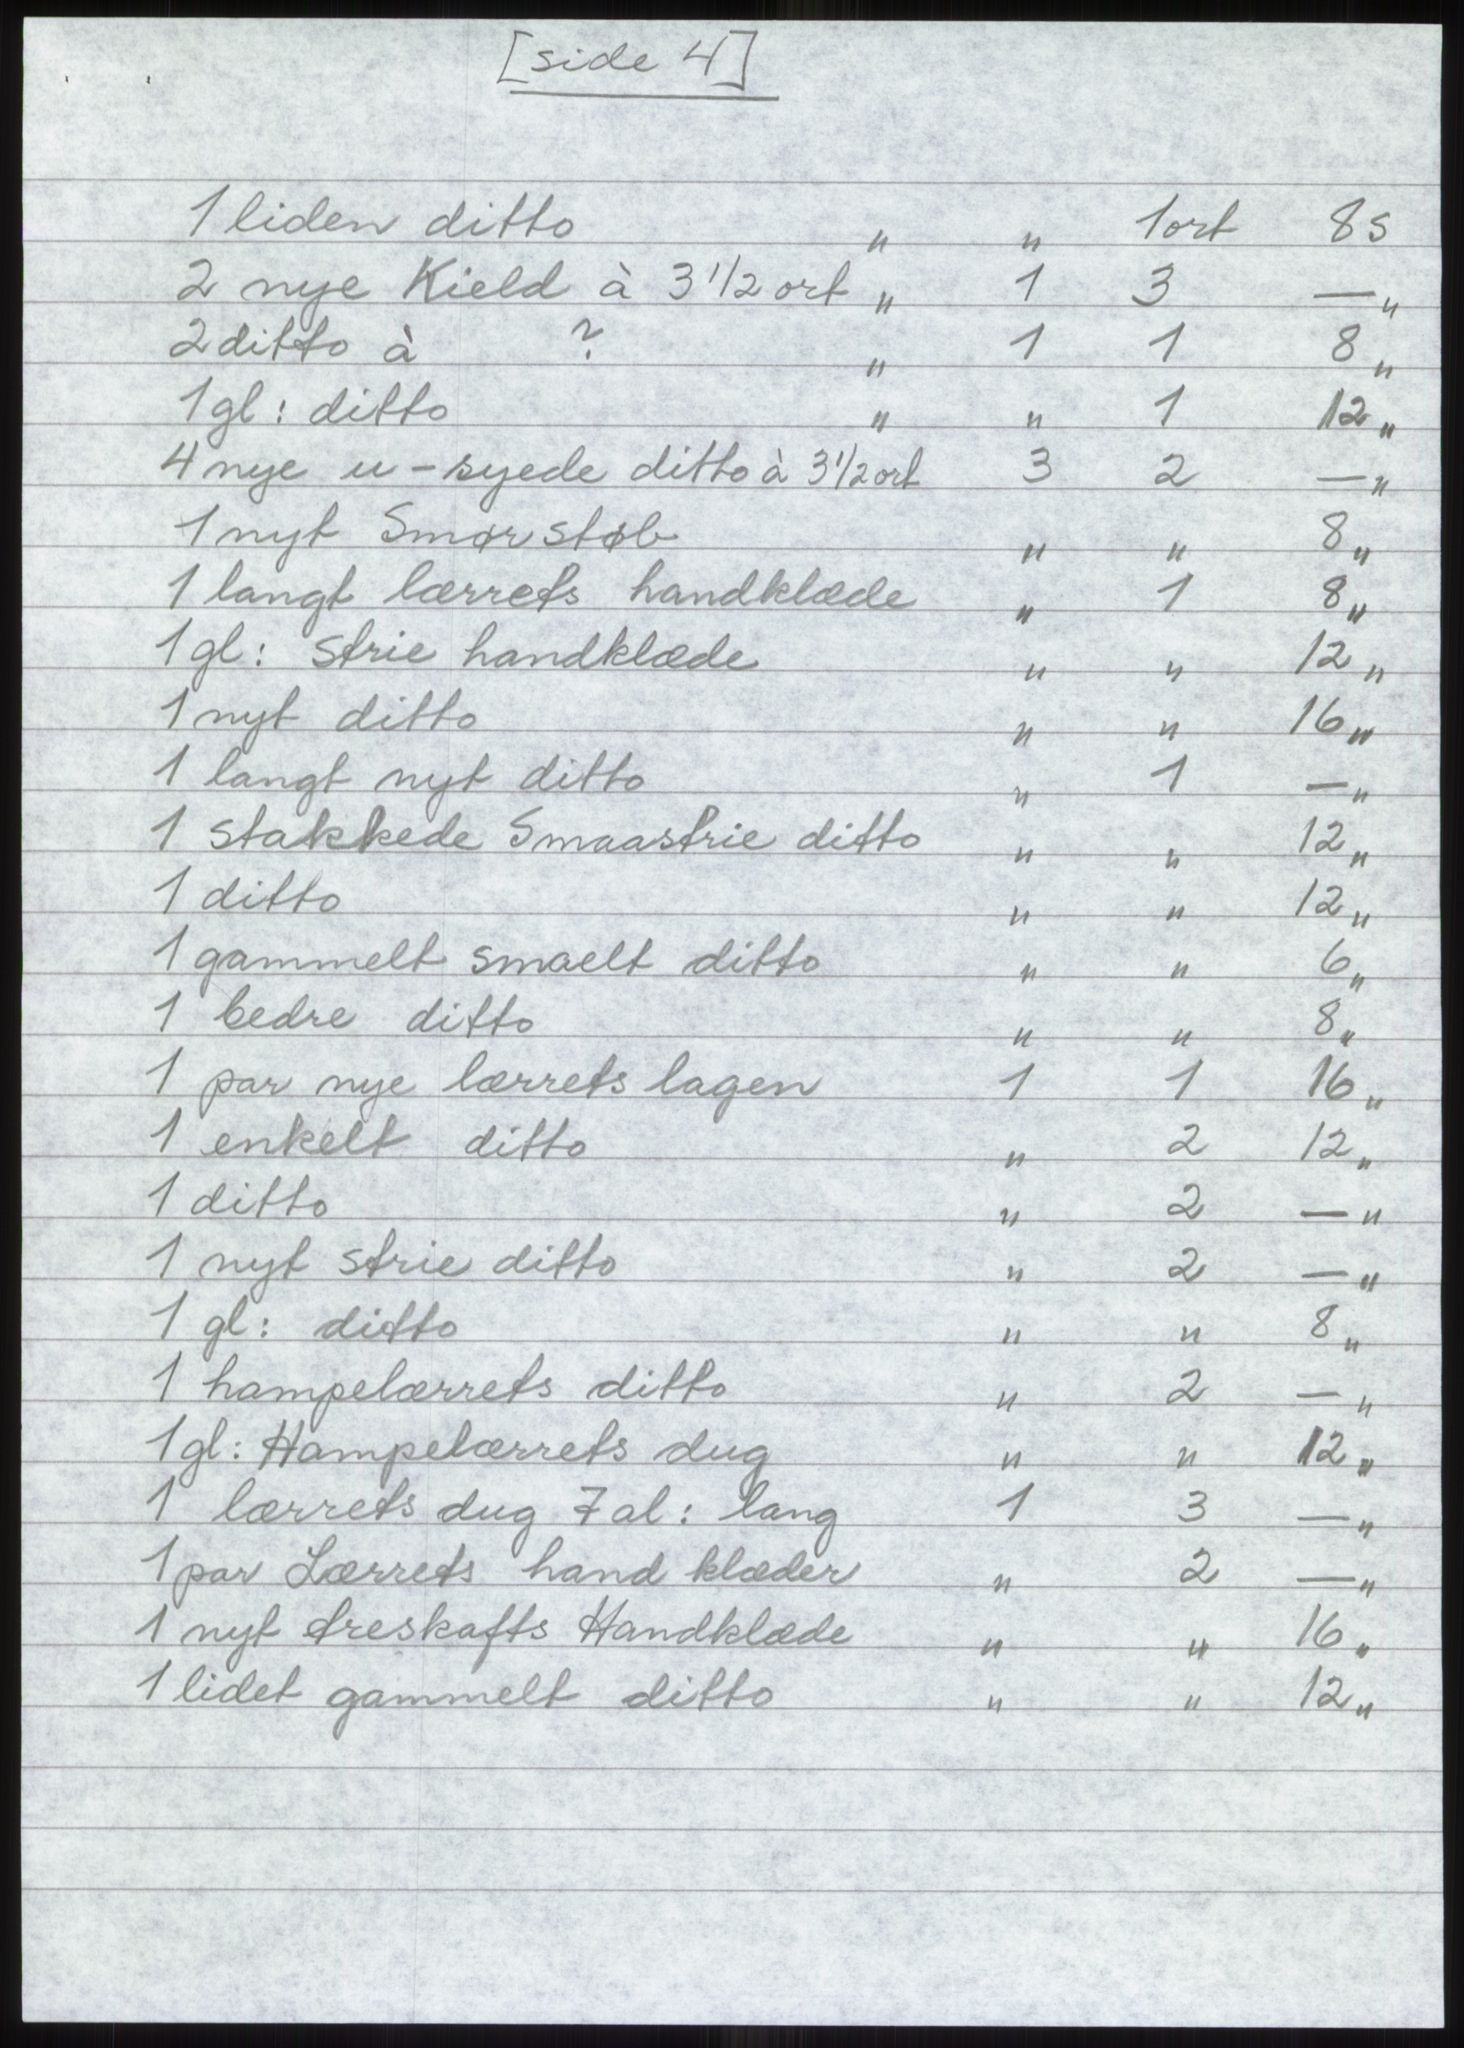 [side 4]
1 liden ditto " " 1 ort 8 s
2 nye Kield à 3 1/2 ort " 1 3 — "
2 ditto à ? " 1 1 8 "
1 gl: ditto " " 1 12 "
4 nye u-syede ditto à 3 1/2 ort 3 2 — "
1 nyt Smørstøb " " 8 "
1 langt lærrets handklæde " 1 8 "
1 gl: strie handklæde " " 12 "
1 nyt ditto " " 16 "
1 langt nyt ditto " 1 — "
1 stakkede Smaastrie ditto " " 12 "
1 ditto " " 12 "
1 gammelt smaelt ditto " " 6 "
1 bedre ditto " " 8 "
1 par nye lærrets lagen 1 1 16 "
1 enkelt ditto " 2 12 "
1 ditto " 2 — "
1 nyt strie ditto " 2 — "
1 gl: ditto " " 8 "
1 hampelærrets ditto " 2 — "
1 gl: Hampelærrets dug " " 12 "
1 lærrets dug 7 al: lang 1 3 — "
1 par Lærrets hand klæder " 2 — "
1 nyt treskafts Handklæde " " 16 "
1 lidet gammelt ditto " " 12 "